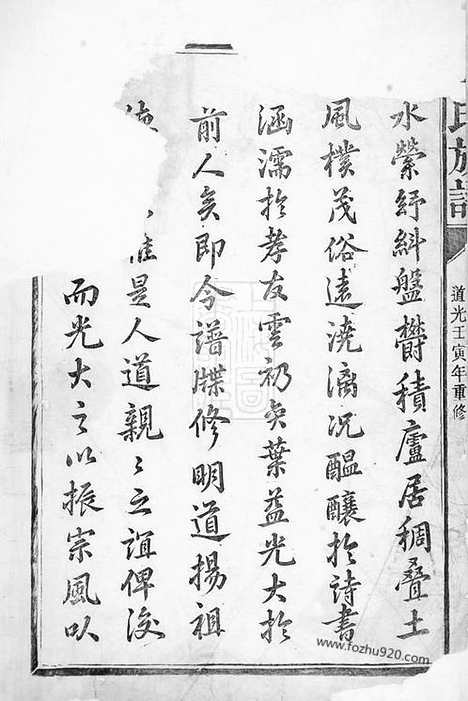 水縈紆糾盤欝積廬居稠叠土
風樸茂俗遠澆漓况醖釀扵詩書
涵濡扵孝友雲礽奕葉益光大扵
前人矣即今譜牒修明道揚祖
惟是人道親〻之誼俾後
而光大之以振宗風以
氏族譜
道光壬寅年重修
www.fozhu920.com